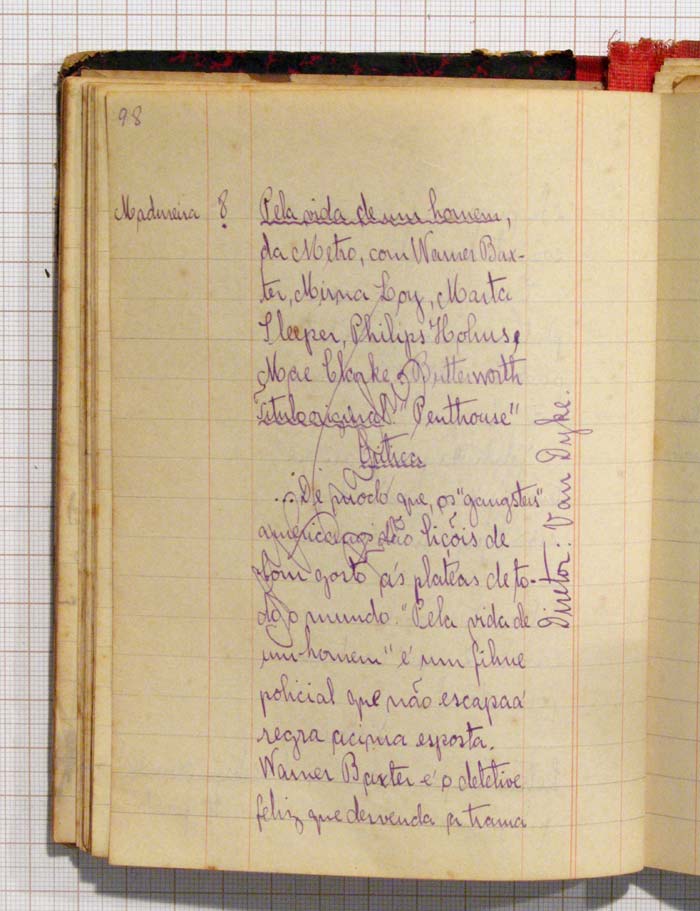 98
Madureira 8 Pela vida de um homem,
da Metro, com Warner Bax-
ter, Mirna Loy, Marta
Sleeper, Philips Holms,
Mae Clarke, Butterworth
Titulo original: "Penthouse"
Critica
...De modo que, os "gangsters"
americanos dão liçóis de
bom gosto ás platéas de to-
do o mundo. "Pela vida de
um homem" é um filme
policial que não escapa á
regra acima esposta.
Warner Baxter é o detetive
feliz que desvenda a trama
Diretor: Van Dyke.